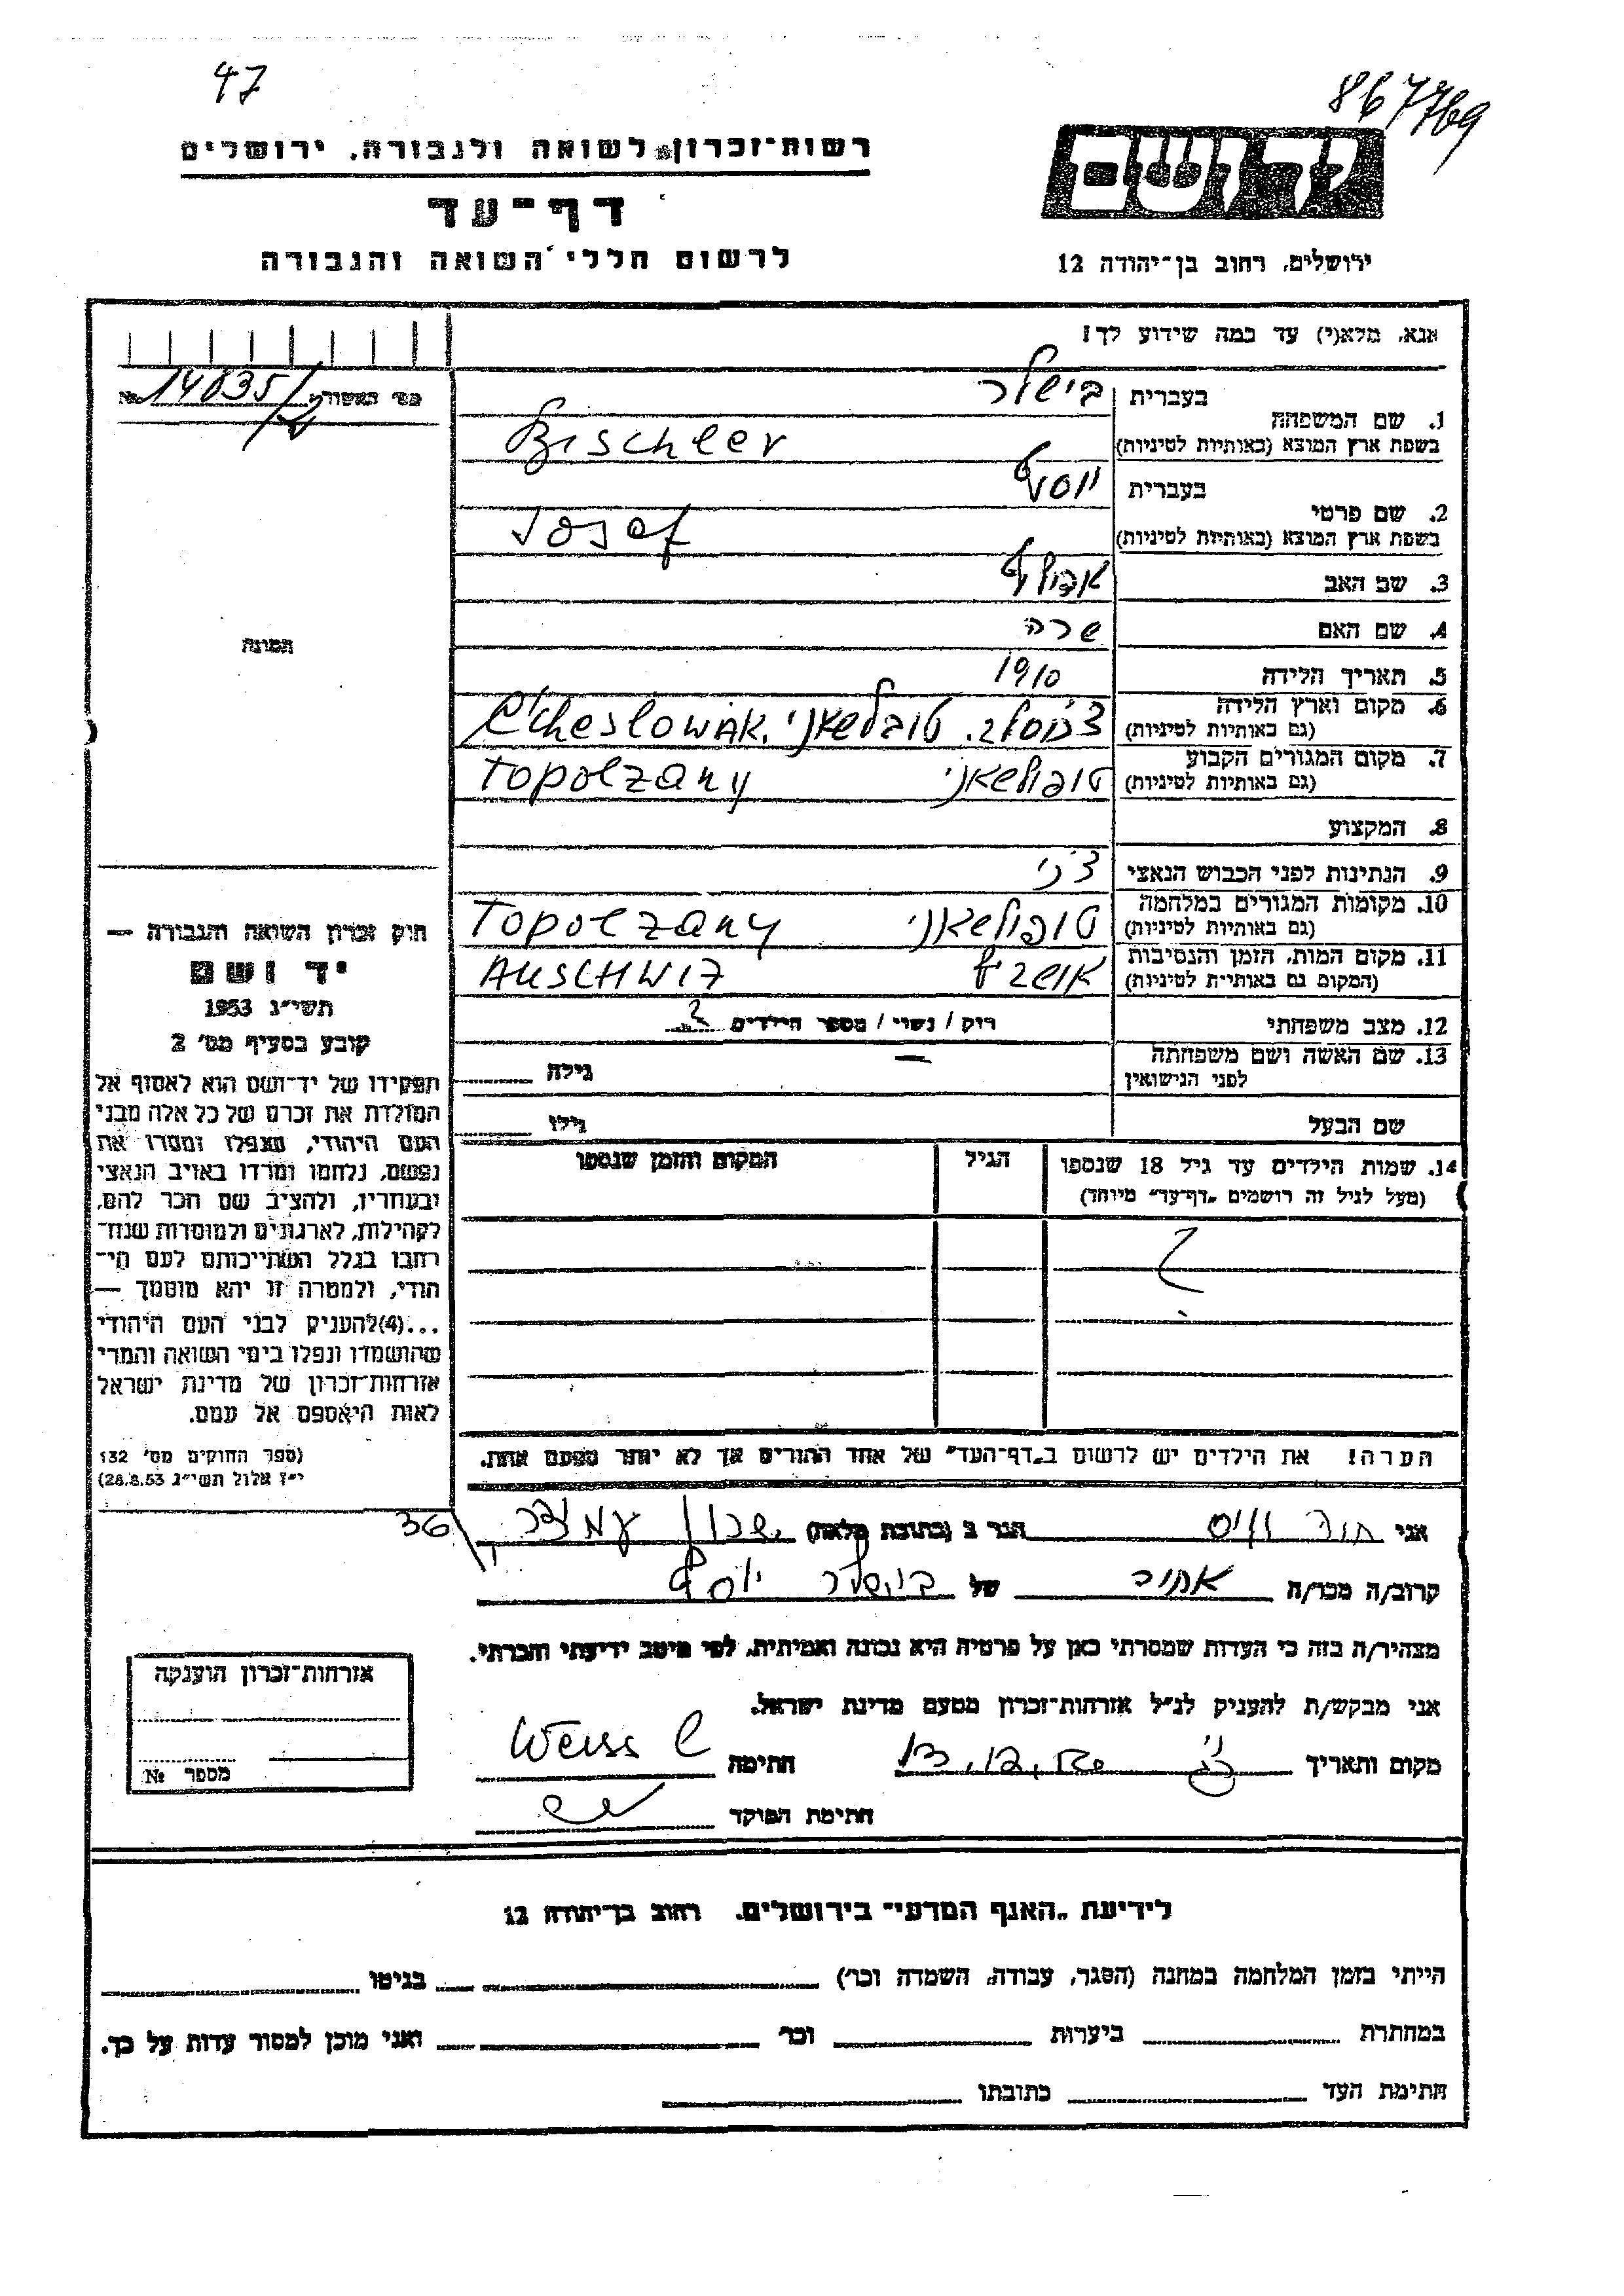 47
867769
רשות־זכרון לשואה ולגבורה, ירושלים
דף־עד
לרשום חללי השואה והגבורה
יד ושם
ירושלים, רחוב בן־יהודה 12
אנא, מלא(י) עד כמה שידוע לך!
מס׳ האשור No 14835/
1. שם המשפחה בעברית בישלר
בשפת ארץ המוצא (באותיות לטיניות) Bischler
2. שם פרטי בעברית יוסף
בשפת ארץ המוצא (באותיות לטיניות) Josef
3. שם האב אדולף
4. שם האם שרה
5. תאריך הלידה 1910
6. מקום וארץ הלידה
(גם באותיות לטיניות) טופולשאני. Cheslowak
7. מקום המגורים הקבוע
(גם באותיות לטיניות) טופולשאני Topolzany
8. המקצוע
9. הנתינות לפני הכבוש הנאצי צ׳כי
10. מקומות המגורים במלחמה
(גם באותיות לטיניות) טופולשאני Topolzany
11. מקום המות, הזמן והנסיבות
(המקום גם באותיות לטיניות) AUSCHWIZ
12. מצב משפחתי רוק / נשוי / מספר הילדים ?
13. שם האשה ושם משפחתה — גילה
לפני הנישואין
שם הבעל גילו
14. שמות הילדים עד גיל 18 שנספו הגיל המקום והזמן שנספו
(מעל לגיל זה רושמים „דף־עד״ מיוחד)
?
הערה! את הילדים יש לרשום ב„דף־העד״ של אחד ההורים אך לא יותר מפעם אחת.
תמונה
חוק זכרון השואה והגבורה —
יד ושם
תשי״ג 1953
קובע בסעיף מס׳ 2
תפקידו של יד־ושם הוא לאסוף אל
המולדת את זכרם של כל אלה מבני
העם היהודי, שנפלו ומסרו את
נפשם, נלחמו ומרדו באויב הנאצי
ובעוזריו, ולהציב שם וזכר להם,
לקהילות, לארגונים ולמוסדות שנח־
רבו בגלל השתייכותם לעם הי־
הודי, ולמטרה זו יהא מוסמך —
...(4) להעניק לבני העם היהודי
שהושמדו ונפלו בימי השואה והמרי
אזרחות־זכרון של מדינת ישראל
לאות היאספם אל עמם.
(ספר החוקים מס׳ 132
י״ז אלול תשי״ג 28.8.53)
אני וייס הגר ב (כתובת מלאה) 36
קרוב/ה מכר/ה של בישלר יוסף
מצהיר/ה בזה כי העדות שמסרתי כאן על פרטיה היא נכונה ואמיתית, לפי מיטב ידיעתי והכרתי.
אני מבקש/ת להעניק לנ״ל אזרחות־זכרון מטעם מדינת ישראל.
מקום ותאריך חתימה Weiss
חתימת הפוקד
אזרחות־זכרון הוענקה
מספר No
לידיעת „האגף המדעי״ בירושלים, רחוב בן־יהודה 12
הייתי בזמן המלחמה במחנה (הסגר, עבודה, השמדה וכו׳) בגיטו
במחתרת ביערות וכו׳ ואני מוכן למסור עדות על כך.
חתימת העד כתובתו